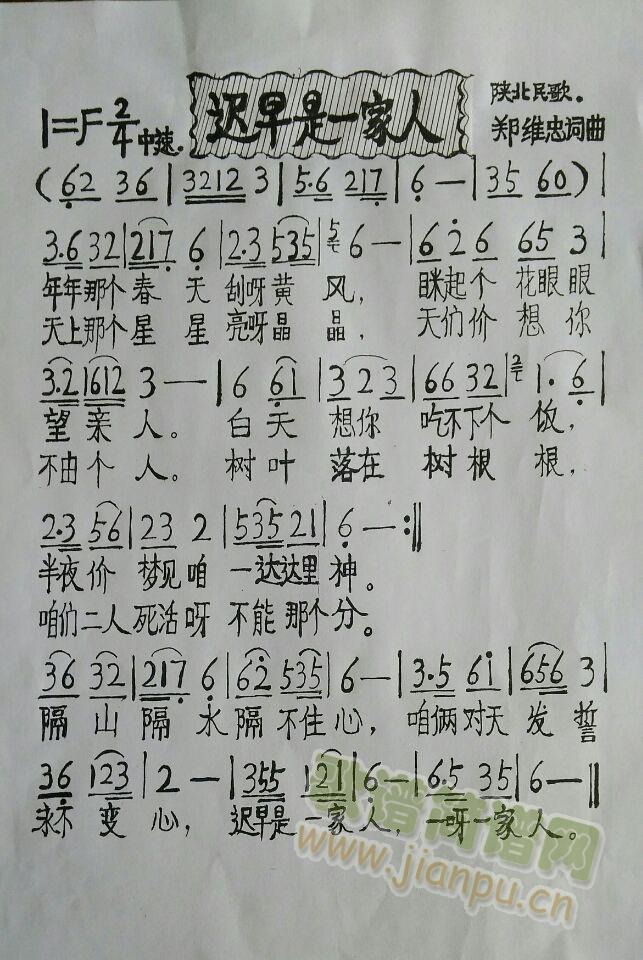 1=F 2/4 中速. 迟早是一家人 陕北民歌。
郑维忠词曲
(62 36|3212 3|5·6 217|6—|35 60)|
3·6 32|217 6|2·3 535|5 6—|6 2 6 65 3|
年年那个春天刮呀黄风, 眯起个花眼眼
天上那个星星亮呀晶晶, 天们价想你
3·2 1612 3—|6 61|3 2 3|66 32|2 1·6|
望亲人。白天想你吃不下个饭,
不由个人。树叶落在树根根,
2·3 56|23 2|535 21|6—:||
半夜价梦见咱一达达里神。
咱们二人死活呀不能那个分。
36 32|217 6|62 535|6—|3·5 61|656 3|
隔山隔水隔不住心,咱俩对天发誓
36 123|2—|355 121|6—|6·5 35|6—||
永不变心,迟早是一家人,一呀一家人。
歌谱简谱网
www.jianpu.cn